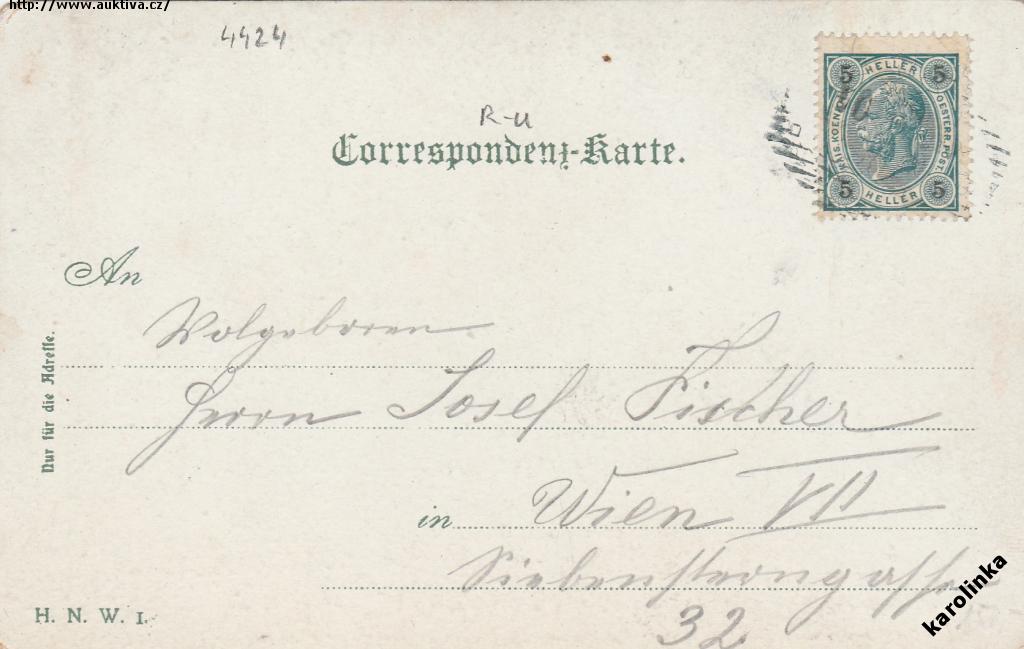 http://www.auktiva.cz/
4424
R-U
Correspondenz-Karte.
5 HELLER 5
KAIS. KOENIGL. OESTERR. POST
5 HELLER 5
An
Wolgeboren
Herrn Josef Fischer
in Wien VII
Siebensterngasse
32
Nur für die Adresse.
H. N. W. I.
karolinka